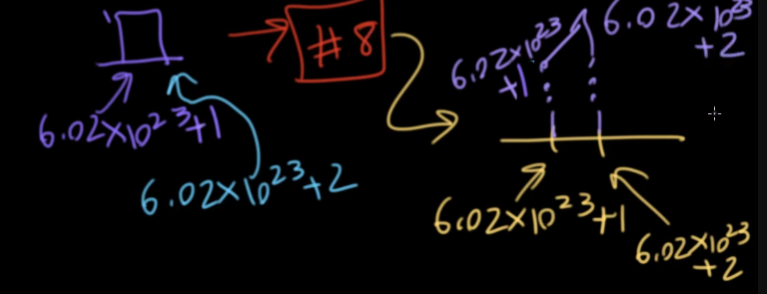 6.02×10²³+1
6.02×10²³+2
#8
6.02×10²³
+1
6.02×10²³
+2
6.02×10²³+1
6.02×10²³
+2